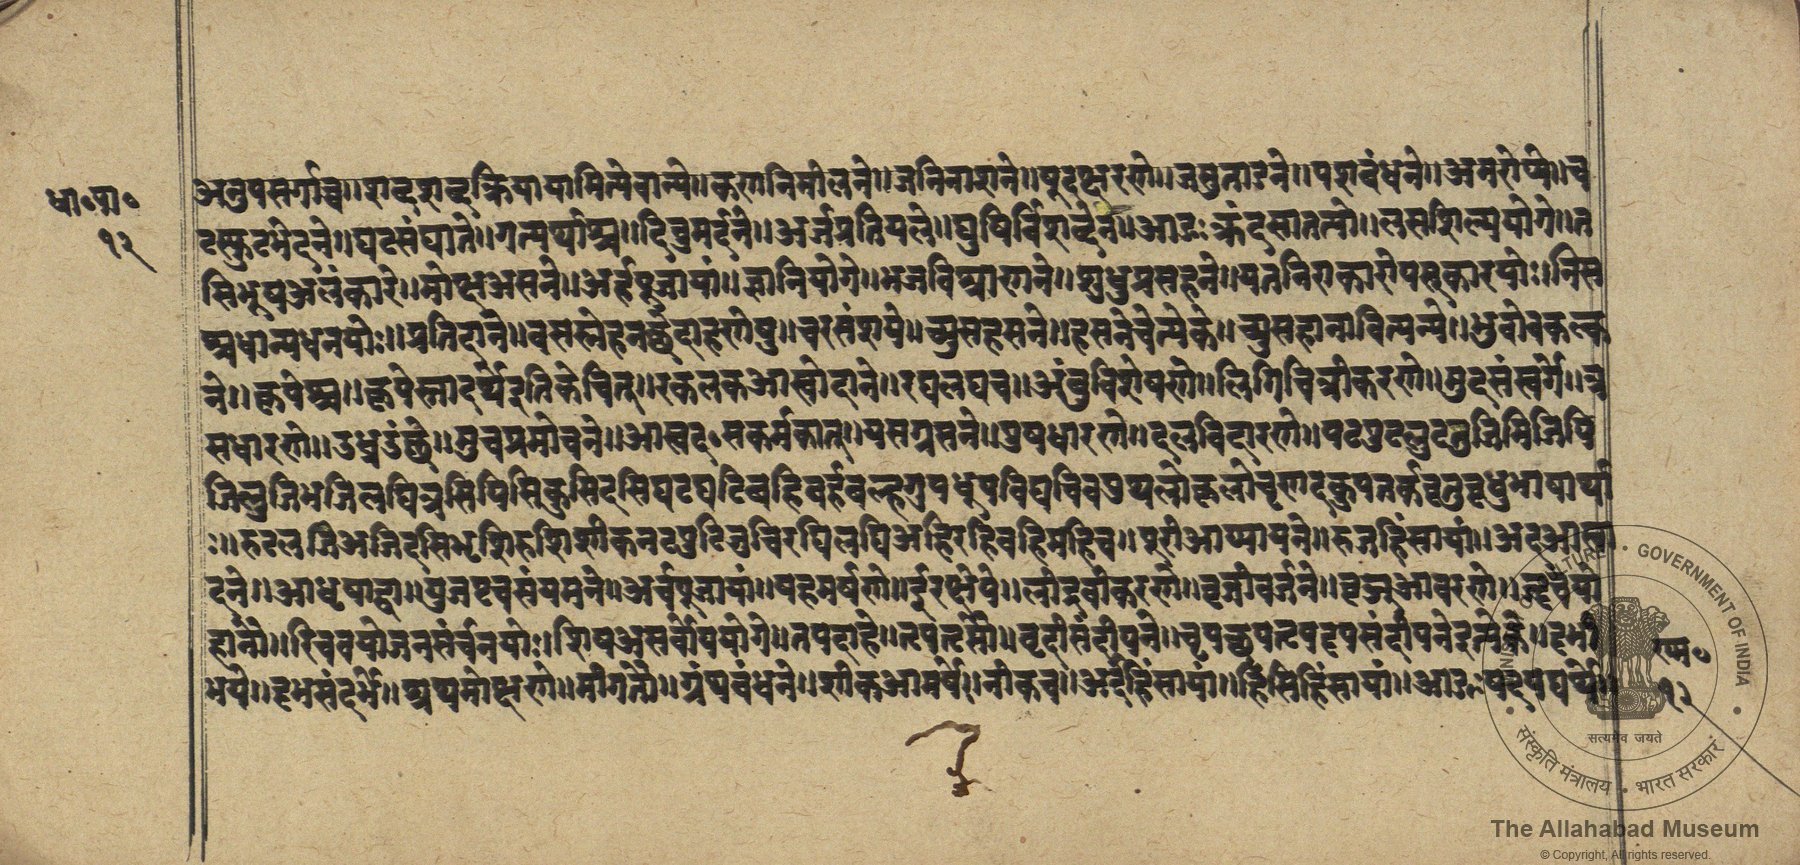 धा॰पा॰
१२
अनुपसर्गाच्च॥शब्दशब्दक्रियायामित्येवान्ये॥कणनिमीलने॥जभिनाशने॥षूदक्षरणे॥जसुताडने॥पशबंधने॥अमरोगे॥च
टस्फुटभेदने॥घटसंघाते॥गत्यर्थाश्च॥दिवुमर्दने॥अर्जप्रतियत्ने॥घुषिर्विशब्दने॥आङःक्रंदसातत्ये॥लसशिल्पयोगे॥त
सिभूषअलंकारे॥मोक्षअसने॥अर्हपूजायां॥ज्ञानियोगे॥भजविश्राणने॥शृधुप्रसहने॥यतनिराकारोपस्कारयोः॥निस
श्चधान्यधनयोः॥प्रतिदाने॥वसस्नेहनच्छेदाहरणेषु॥चरसंशये॥च्युसहसने॥हसनेचेत्येके॥च्युसहानावित्यन्ये॥भुवोवकल्क
ने॥कृपेश्च॥कृपेस्तादर्थ्येइतिकेचित्॥रकलकआस्वादने॥रघलघच॥अंचुविशेषणे॥लिगिचित्रीकरणे॥मुदसंसर्गे॥त्र
सधारणे॥उध्रसउंछे॥मुचप्रमोचने॥आस्वदःसकर्मकात्॥ग्रसग्रसने॥पुषधारणे॥दलविदारणे॥पटपुटलुटतुजिमिजिपि
जिलुजिभजिलघित्रसिपिसिकुसिदसिघटघटिबृहिबर्हबल्हगुपधूपविच्छचिवपुथलोकृलोचृणदकुपतर्कवृतुवृधुभाषार्था
ः॥रुटलजिअजिदसिभृशिरुशिशीकनटपुटिजुचिरघिलघिअहिरहिचहिमहिच॥पूरीआप्यायने॥रुजहिंसायां॥अदआस्वा
दने॥आधृषाद्वा॥युजपृचसंयमने॥अर्चपूजायां॥षहमर्षणे॥ईरक्षेपे॥लीद्रवीकरणे॥वृजीवर्जने॥वृञ्आवरणे॥जॄवयो
हानौ॥रिचवियोजनसंपर्चनयोः॥शिषअसर्वोपयोगे॥तपदाहे॥तृपतृप्तौ॥छृदीसंदीपने॥चृपछृपतृपदृपसंदीपनेइत्येके॥दृभी
भये॥दृभसंदर्भे॥श्रथमोक्षणे॥मीगतौ॥ग्रंथबंधने॥शीकआमर्षणे॥चीकच॥अर्दहिंसायां॥हिसिहिंसायां॥आङःषदपद्यर्थे॥
राम॰
१२
MINISTRY OF CULTURE • GOVERNMENT OF INDIA
सत्यमेव जयते
संस्कृति मंत्रालय • भारत सरकार
The Allahabad Museum
© Copyright, All rights reserved.